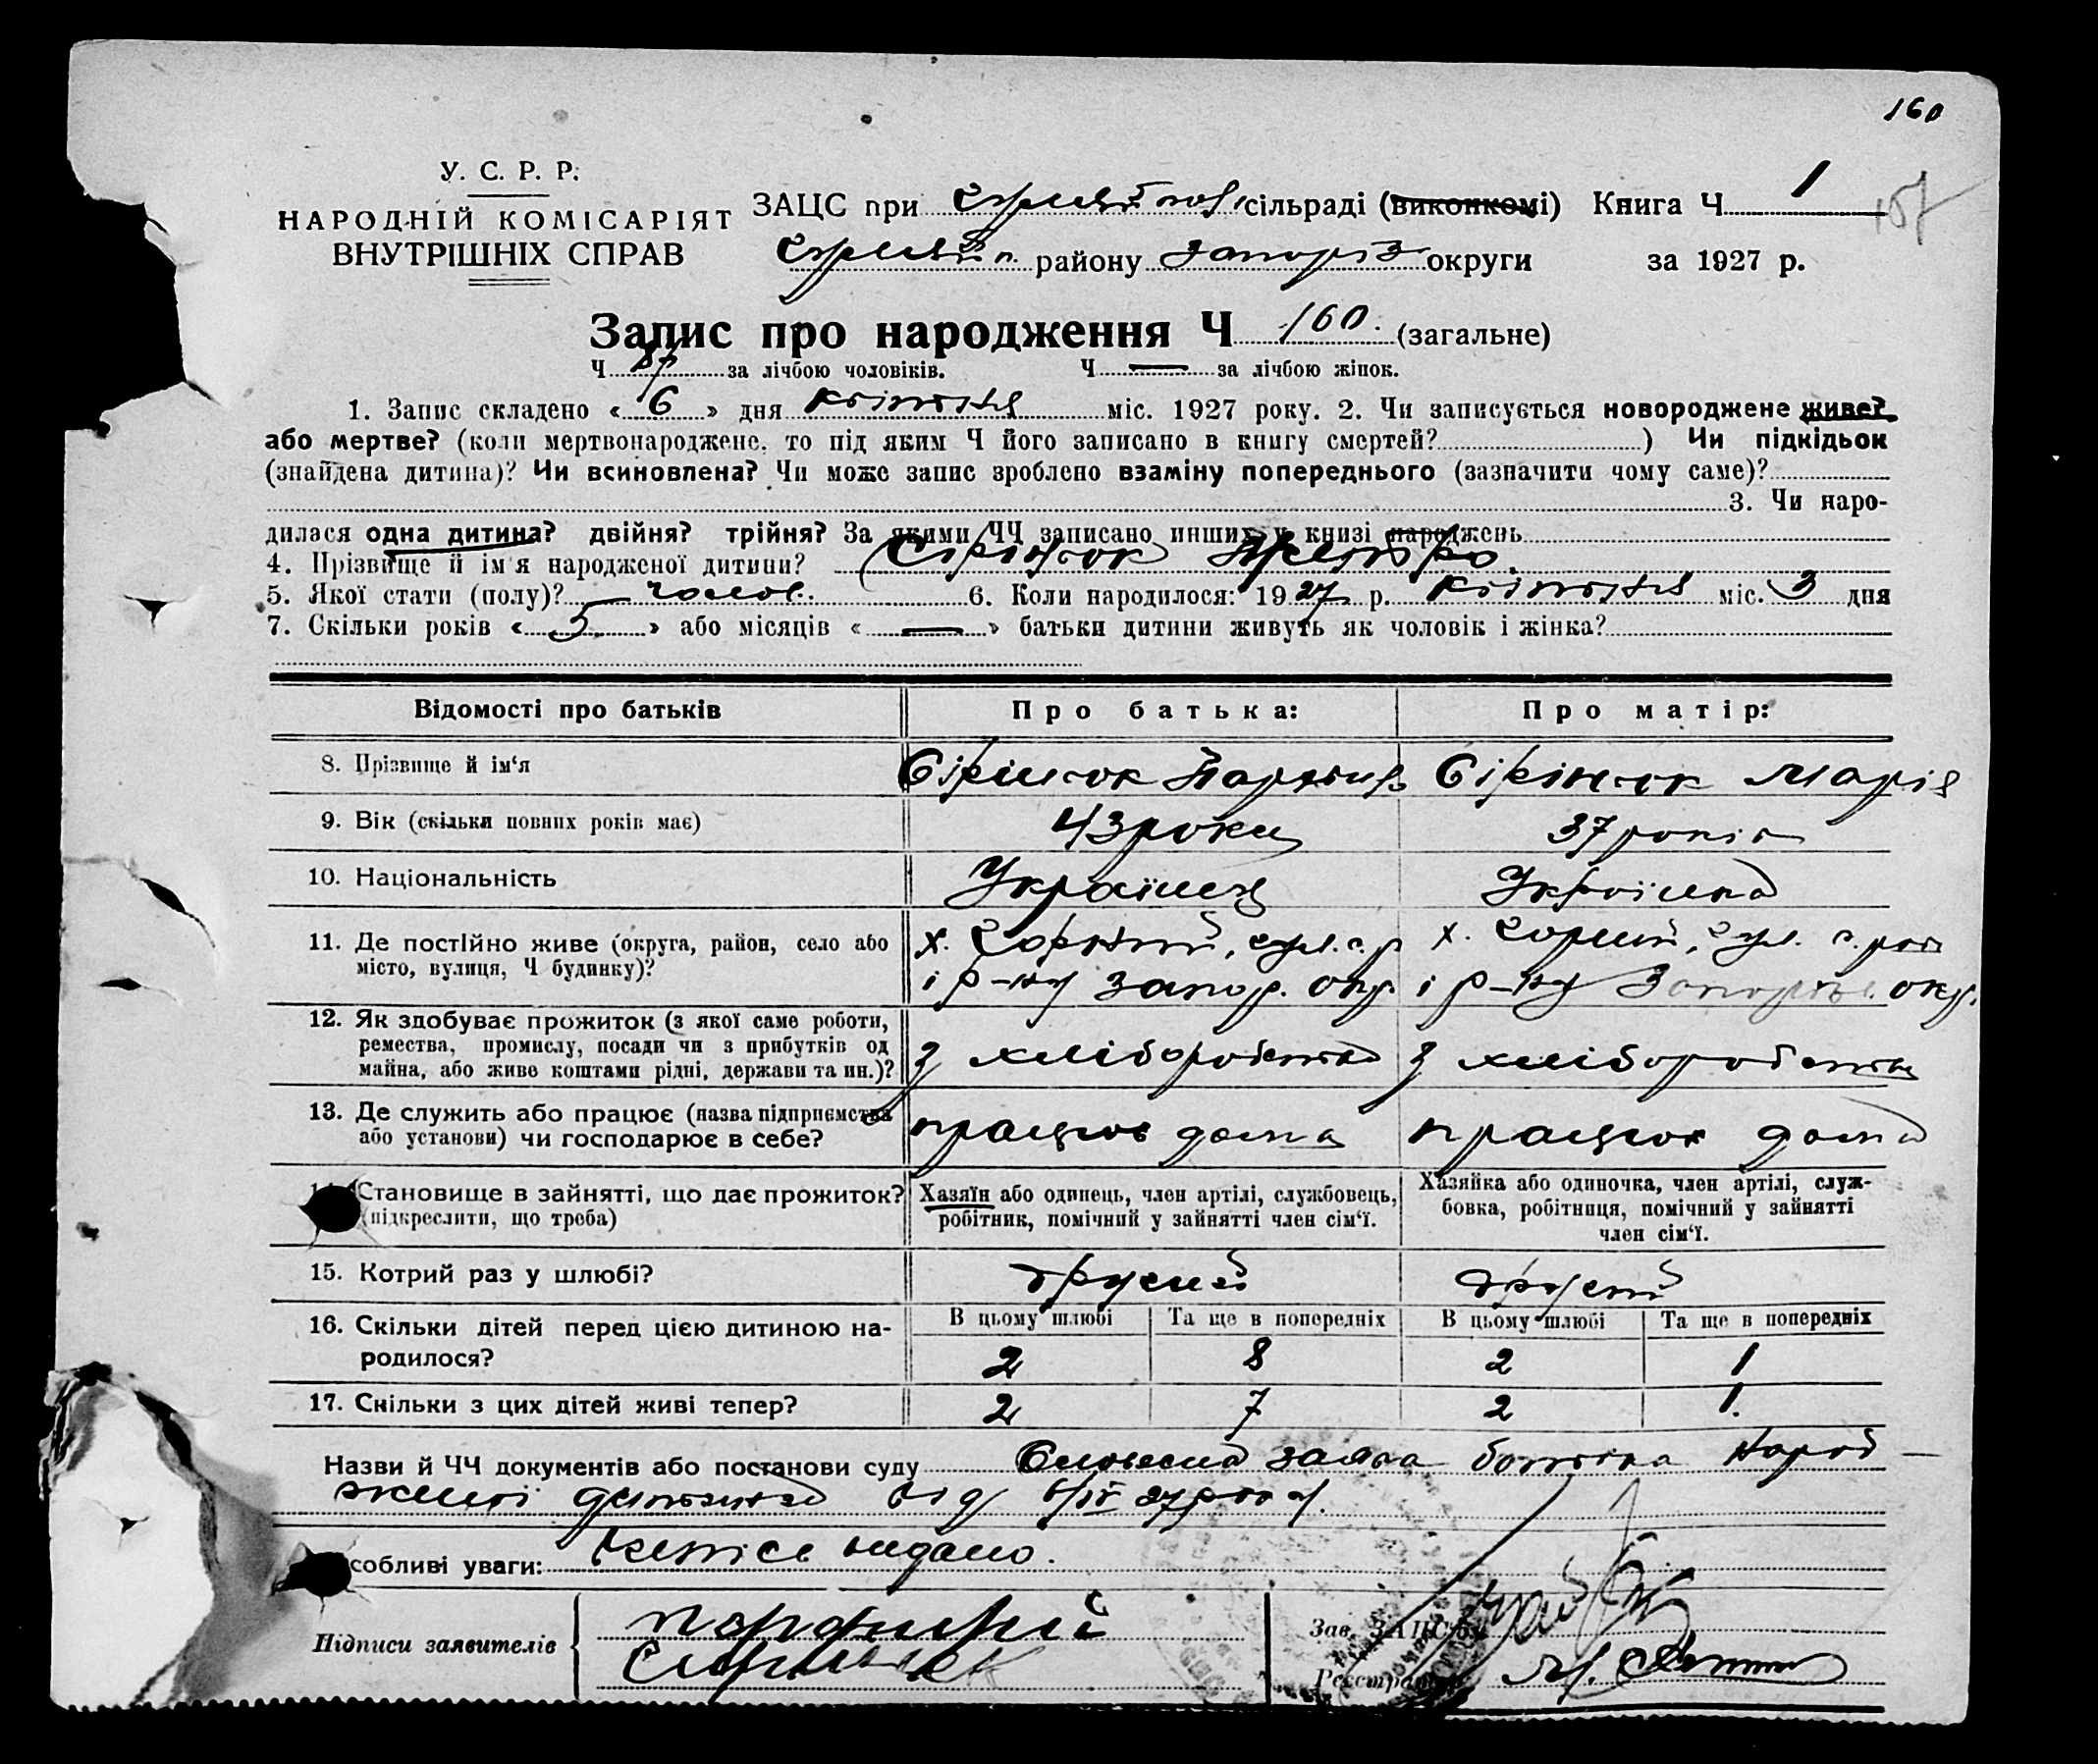 160
У. С. Р. Р.
НАРОДНІЙ КОМІСАРІЯТ
ВНУТРІШНІХ СПРАВ
ЗАЦС при сільраді (виконкомі) Книга Ч. 1
157
району Запоріз округи за 1927 р.
Запис про народження Ч 160. (загальне)
Ч 87 за лічбою чоловіків. Ч — за лічбою жінок.
1. Запис складено « 6 » дня квітня міс. 1927 року. 2. Чи записується новороджене живе?
або мертве? (коли мертвонароджене, то під яким Ч його записано в книгу смертей? ) Чи підкідьок
(знайдена дитина)? Чи всиновлена? Чи може запис зроблено взаміну попереднього (зазначити чому саме)?
3. Чи наро-
дилася одна дитина? двійня? трійня? За якими ЧЧ записано инших у книзі народжень
4. Прізвище й ім'я народженої дитини? Сірінок Петро.
5. Якої стати (полу)? чолов. 6. Коли народилося: 1927 р. квітня міс. 3 дня
7. Скільки років « 5 » або місяців « — » батьки дитини живуть як чоловік і жінка?
Відомості про батьків Про батька: Про матір:
8. Прізвище й ім'я Сірінок Парфир Сірінок Марія
9. Вік (скільки повних років має) 43 роки 37 років
10. Національність Українець Українка
11. Де постійно живе (округа, район, село або х. Горний, с.р х. Горний, с. рад
місто, вулиця, Ч будинку)? і р-ну Запор. окр. і р-ну Запоріз. окр.
12. Як здобуває прожиток (з якої саме роботи,
ремества, промислу, посади чи з прибутків од з хліборобства з хліборобства
майна, або живе коштами рідні, держави та ин.)?
13. Де служить або працює (назва підприємства
або установи) чи господарює в себе? працює дома працює дома
14. Становище в зайнятті, що дає прожиток? Хазяїн або одинець, член артілі, службовець, Хазяйка або одиночка, член артілі, служ-
(підкреслити, що треба) робітник, помічний у зайнятті член сім'ї. бовка, робітниця, помічний у зайнятті
член сім'ї.
15. Котрий раз у шлюбі? другий другий
16. Скільки дітей перед цією дитиною на- В цьому шлюбі Та ще в попередніх В цьому шлюбі Та ще в попередніх
родилося? 2 8 2 1
17. Скільки з цих дітей живі тепер? 2 7 2 1.
Назви й ЧЧ документів або постанови суду Словесна заява батька народ-
женої дитини від 6/IV 27 року.
собливі уваги: видано.
Підписи заявителів
Зав. ЗАЦС'ом
Реєстратор